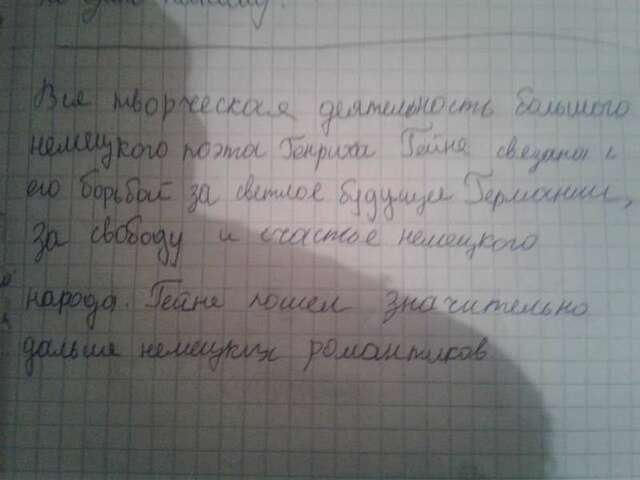 Вся творческая деятельность большого
немецкого поэта Генриха Гейне свезана с
его борьбой за светлое будущее Германии,
за свободу и счастье немецкого
народа. Гейне пошел значительно
дальше немецких романтиков